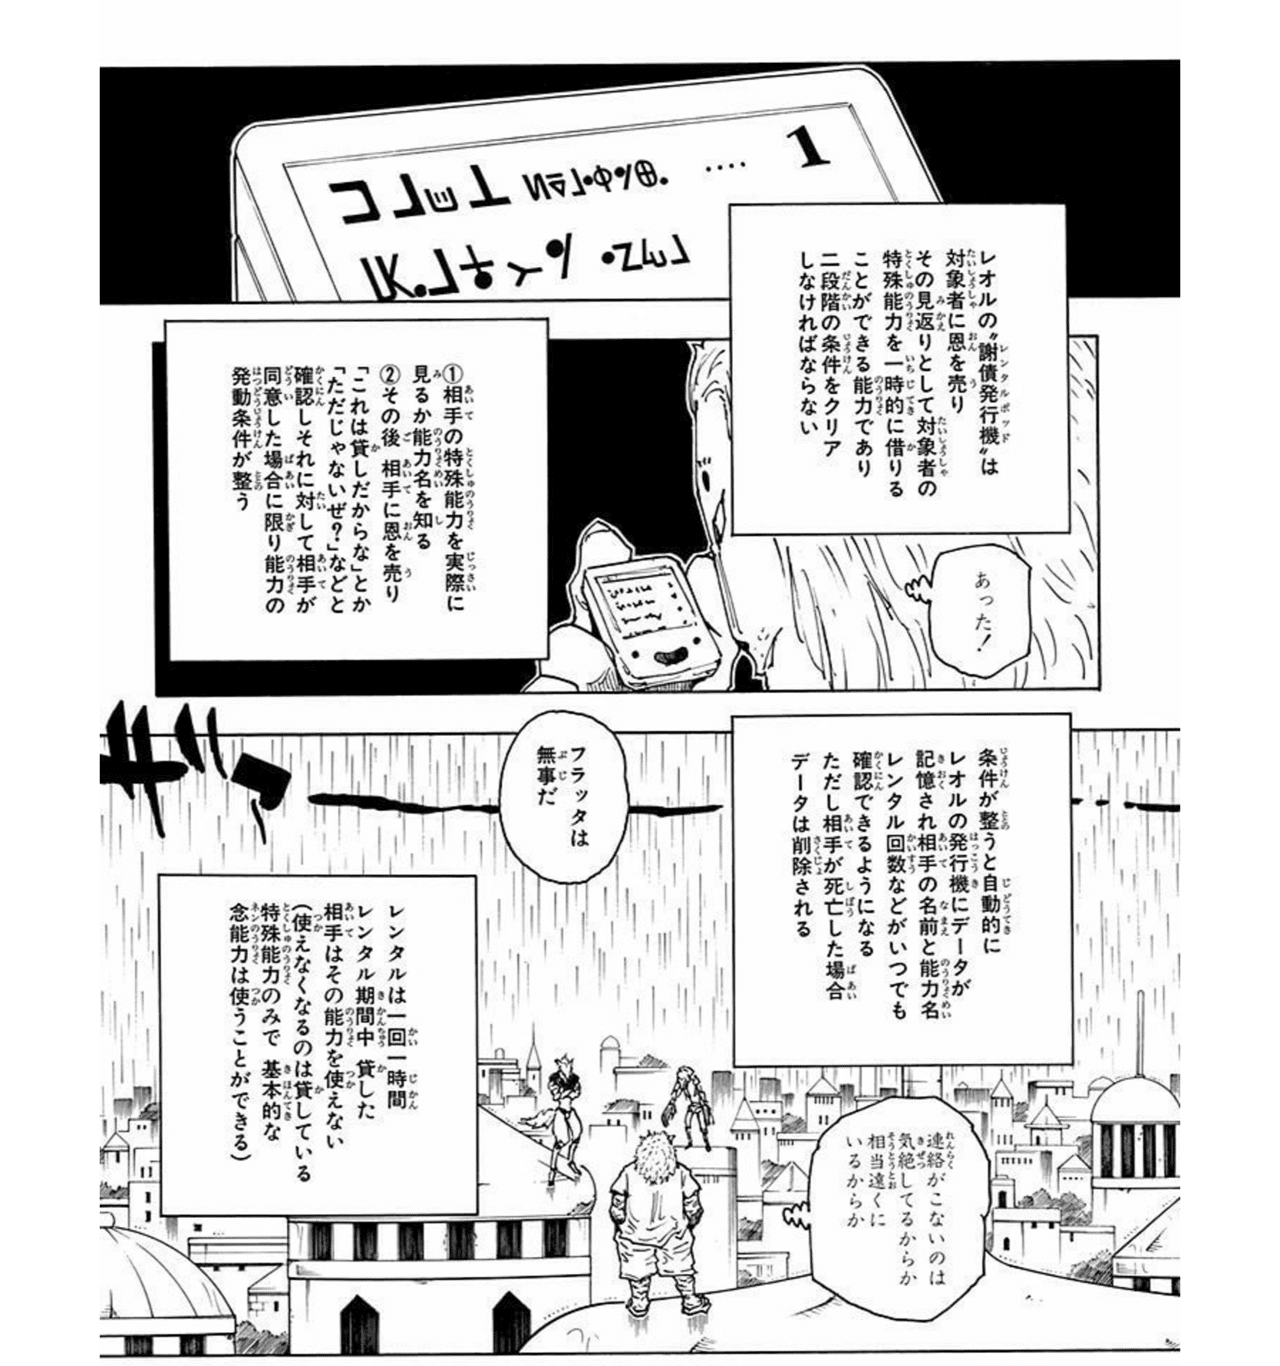 1
レオルの“謝債発行機”は
対象者に恩を売り
その見返りとして対象者の
特殊能力を一時的に借りる
ことができる能力であり
二段階の条件をクリア
しなければならない
あった!
①相手の特殊能力を実際に
見るか能力名を知る
②その後 相手に恩を売り
「これは貸しだからな」とか
「ただじゃないぜ?」などと
確認しそれに対して相手が
同意した場合に限り能力の
発動条件が整う
条件が整うと自動的に
レオルの発行機にデータが
記憶され相手の名前と能力名
レンタル回数などがいつでも
確認できるようになる
ただし相手が死亡した場合
データは削除される
フラッタは
無事だ
ザァー
レンタルは一回一時間
レンタル期間中 貸した
相手はその能力を使えない
(使えなくなるのは貸している
特殊能力のみで 基本的な
念能力は使うことができる)
連絡がこないのは
気絶してるからか
相当遠くに
いるからか